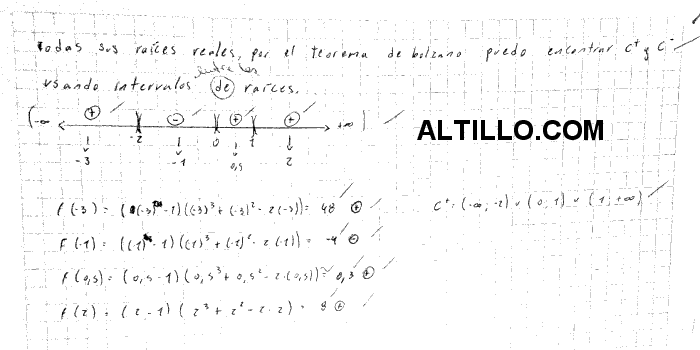 todas sus raíces reales, por el teorema de bolzano puedo encontrar C⁺ y C⁻
entre las
usando intervalos de raíces...
(-∞ ⊕ -2 ⊖ 0 ⊕ 1 ⊕ +∞)
-3 -1 0,5 2
ALTILLO.COM
f(-3) = ((-3)-1)((-3)³+(-3)²-2(-3)) = 48 ⊕
C⁺: (-∞,-2) ∪ (0,1) ∪ (1,+∞)
f(-1) = ((-1)-1)((-1)³+(-1)²-2(-1)) = -4 ⊖
f(0,5) = (0,5-1)(0,5³+0,5²-2·(0,5)) ≅ 0,3 ⊕
f(2) = (2-1)(2³+2²-2·2) = 8 ⊕